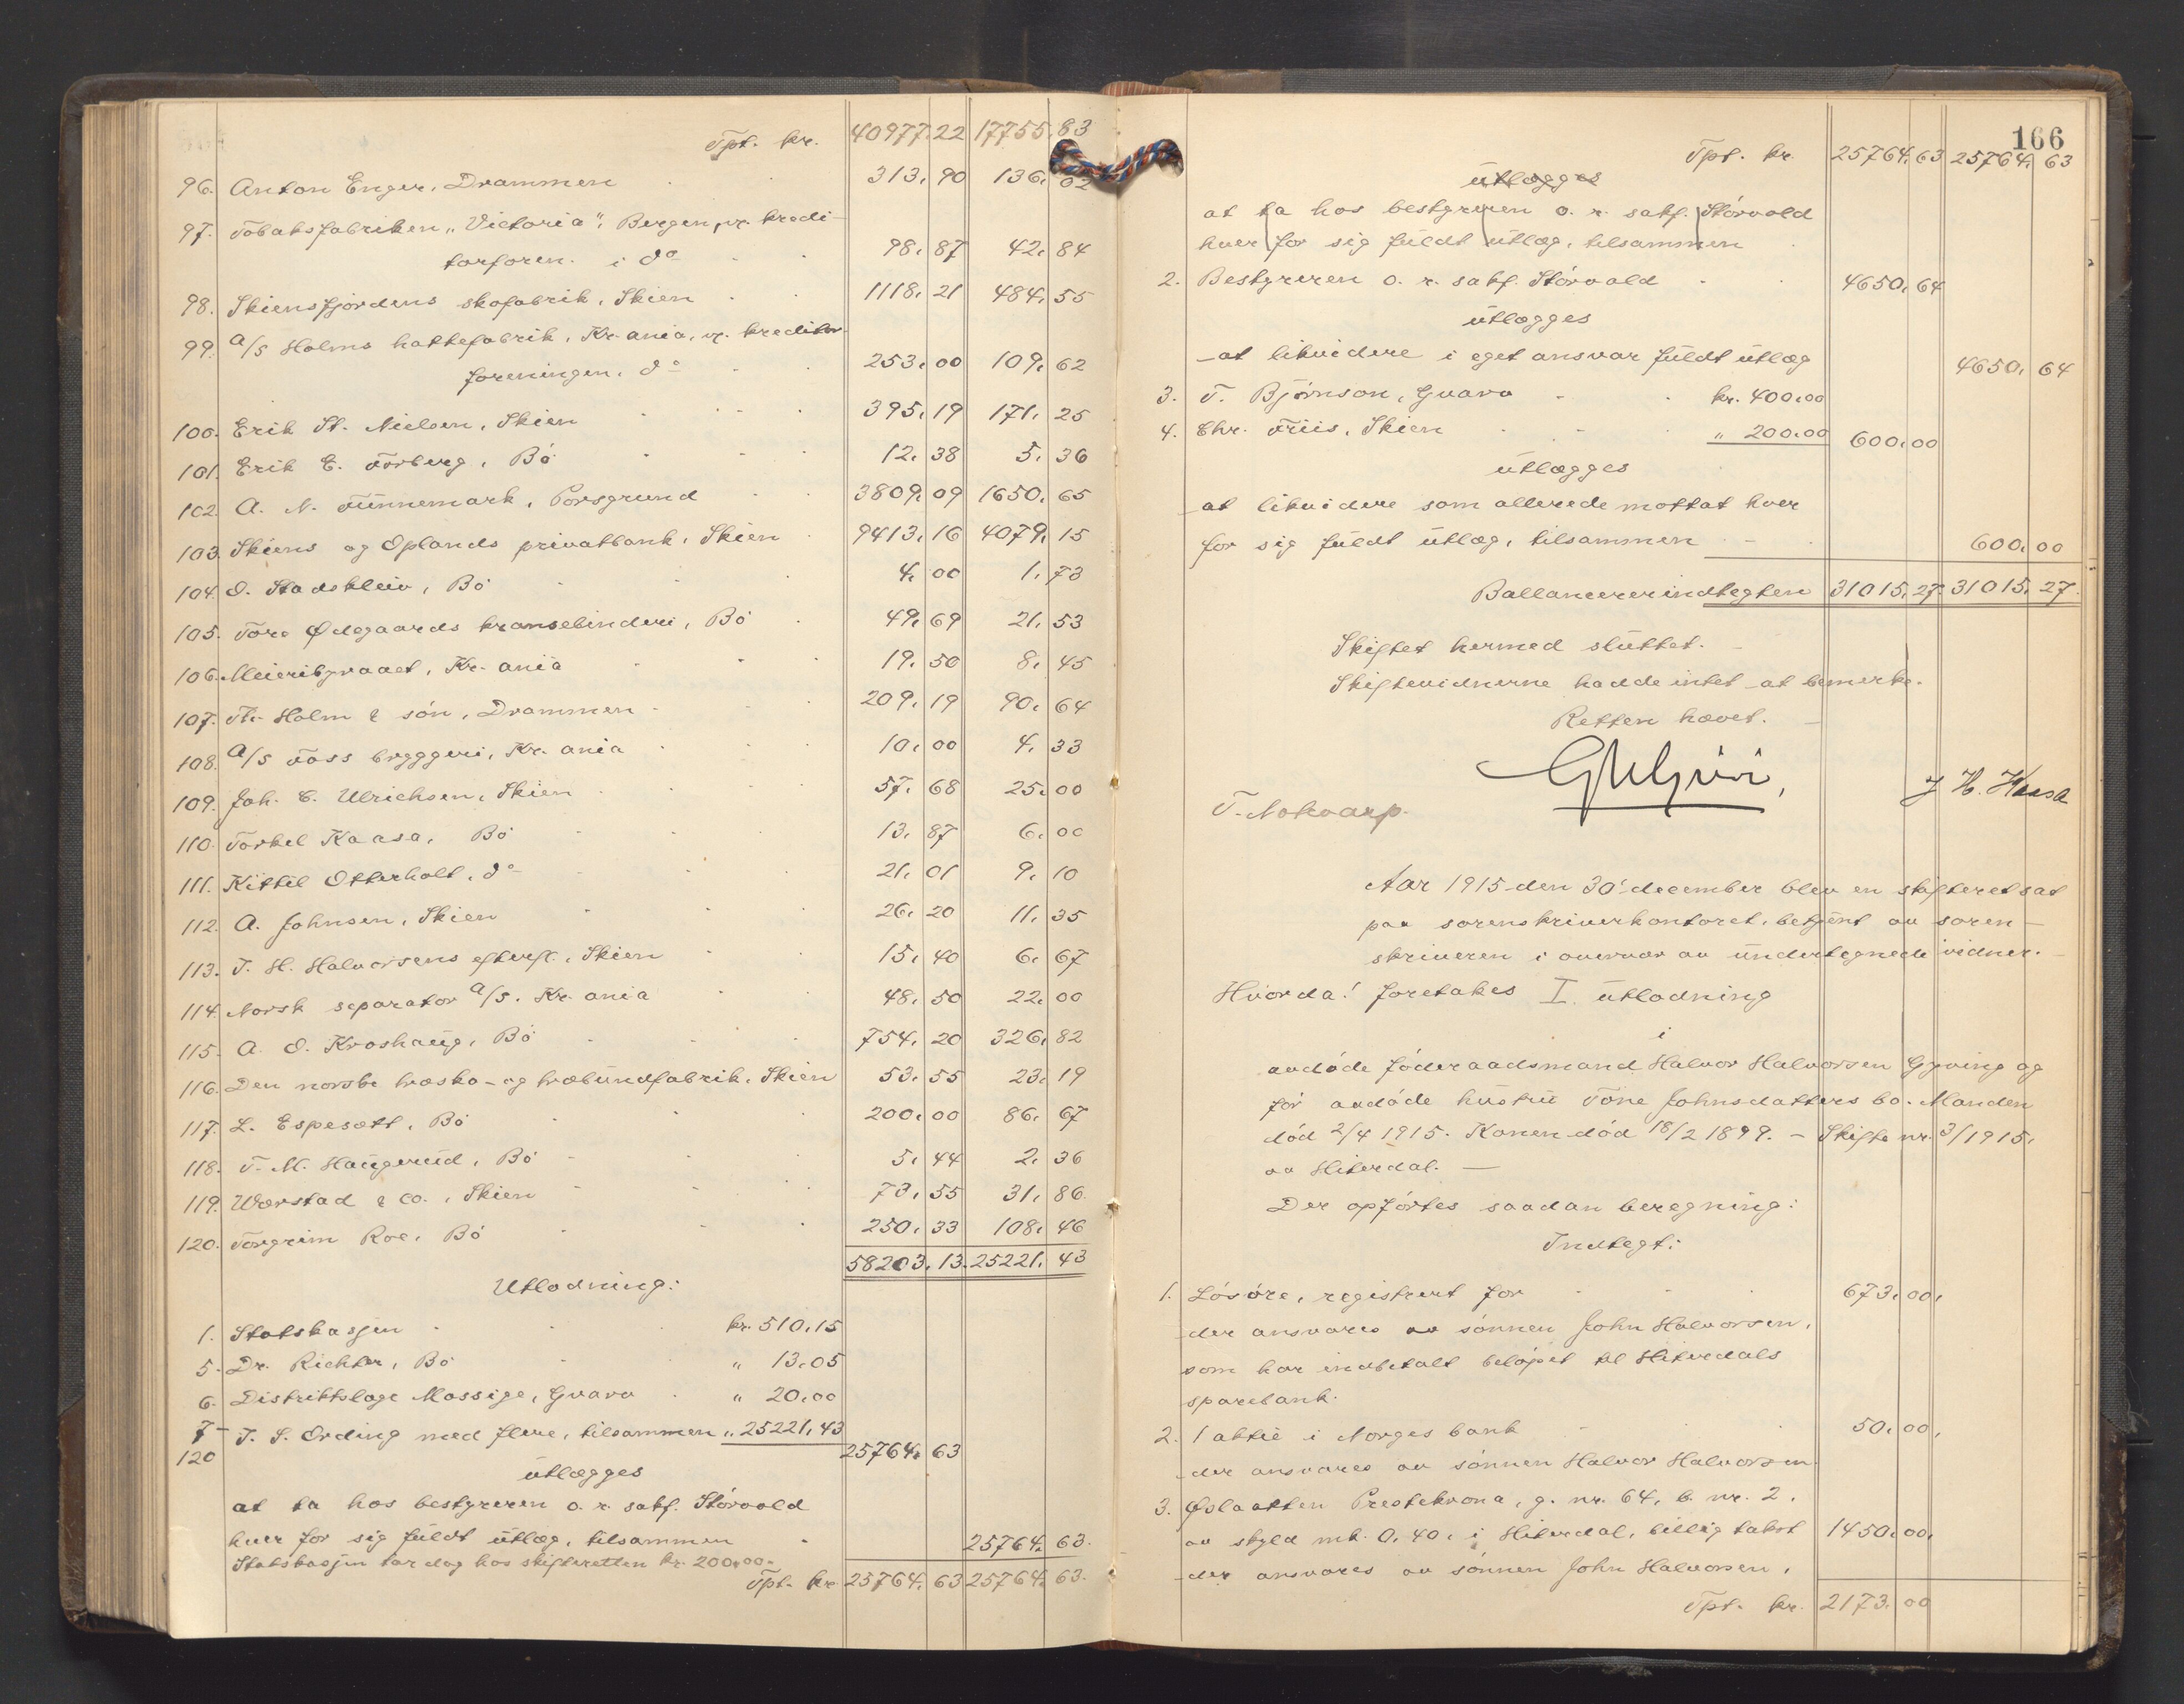 Tpt. kr. 40977.22 17755.83
96. Anton Enger, Drammen 313.90 136.02
97. Tobaksfabriken „Victoria", Bergen, v. kredi-
torforen. i do 98.87 42.84
98. Skiensfjordens skofabrik, Skien 1118.21 484.55
99. A/S Holms hattefabrik, Kr.ania, v. kreditor-
foreningen, do 253.00 109.62
100. Erik St. Nielsen, Skien 395.19 171.25
101. Erik E. Forberg, Bö 12.38 5.36
102. A. N. Funnemark, Porsgrund 3809.09 1650.65
103. Skiens og Oplands privatbank, Skien 9413.16 4079.15
104. O. Stadskleiv, Bö 4.00 1.73
105. Tore Ødegaards kransebinderi, Bö 49.69 21.53
106. Meieribyraaet, Kr.ania 19.50 8.45
107. Th. Holm & sön, Drammen 209.19 90.64
108. A/S Foss bryggeri, Kr.ania 10.00 4.33
109. Joh. C. Ulrichsen, Skien 57.68 25.00
110. Torkel Kaasa, Bö 13.87 6.00
111. Kittil Otterholt, do 21.01 9.10
112. A. Johnsen, Skien 26.20 11.35
113. T. H. Halvorsens efterfl., Skien 15.40 6.67
114. Norsk separator A/S. Kr.ania 48.50 22.00
115. A. O. Kroshaug, Bö 754.20 326.82
116. Den norske træsko- og træbundfabrik, Skien 53.55 23.19
117. L. Espesætt, Bö 200.00 86.67
118. T. M. Haugerud, Bö 5.44 2.36
119. Wærstad & co., Skien 73.55 31.86
120. Torgrim Roe, Bö 250.33 108.46
58203.13. 25221.43
Utlodning:
1. Statskassen kr. 510.15
5. Dr. Richter, Bö " 13.05
6. Distriktslæge Mossige, Gvarv " 20.00
7- T. S. Ording med flere, tilsammen „ 25221.43
120 25764.63
utlægges
at ta hos bestyreren o. r. sakf. Stórvold
hver for sig fuldt utlæg, tilsammen 25764.63.
Statskassen tar dog hos skifteretten kr. 200.00.
Tpt. kr. 25764.63 25764.63.
166
Tpt. kr. 25764.63 25764.63
utlægges
at ta hos bestyreren o. r. sakf. Stórvold
hver for sig fuldt utlæg, tilsammen
2. Bestyreren o. r. sakf. Stórvold 4650.64
utlægges
at likvidere i eget ansvar fuldt utlæg 4650.64
3. T. Björnson, Gvarv kr. 400.00
4. Chr. Friis, Skien „ 200.00 600.00
utlægges
at likvidere som allerede mottat hver
for sig fuldt utlæg, tilsammen 600.00
Ballancerer indtegten 31015.27. 31015.27.
Skiftet hermed sluttet.
Skiftevidnerne hadde intet at bemerke.
Retten hævet.
J. H. Kaasa
T. Nokvarp.
Aar 1915 den 30' december blev en skifteret sat
paa sorenskriverkontoret, betjent av soren-
skriveren i overvær av undertegnede vidner.
Hvorda! foretakes I. utlodning
i
avdöde föderaadsmand Halvor Halvorsen Gyving og
för avdöde hustru Tone Johnsdatters bo. Manden
död 2/4 1915. Konen död 18/2 1899. – Skifte nr. 3/1915,
av Hiterdal. —
Der opförtes saadan beregning:
Indtegt:
1. Lösöre, registrert for 673.00,
der ansvares av sönnen John Halvorsen,
som har indbetalt belöpet til Hiterdals
sparebank.
2. 1 aktie i Norges bank 50.00,
der ansvares av sönnen Halvor Halvorsen
3. Øslaatten Prestekrona, g. nr. 64, b. nr. 2,
av skyld mk. 0.40, i Hiterdal, billig takst 1450.00,
der ansvares av sönnen John Halvorsen,
Tpt. kr. 2173.00